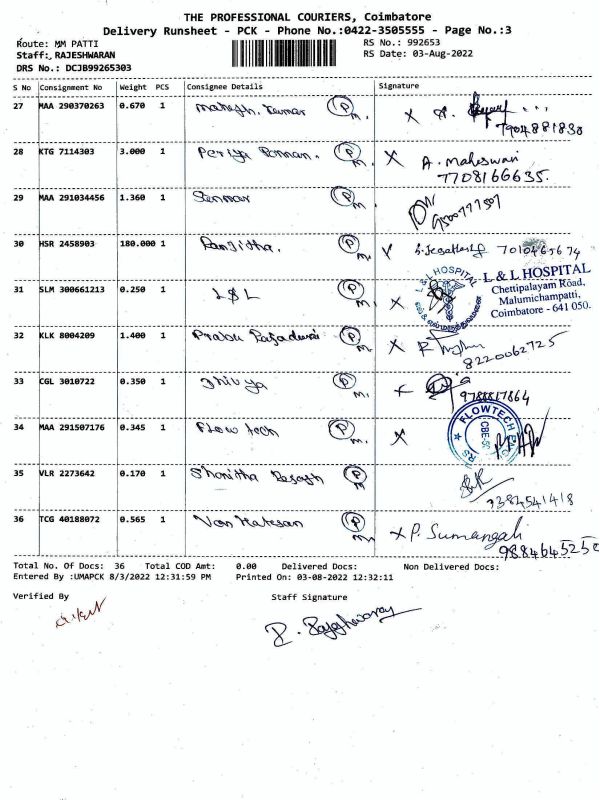 THE PROFESSIONAL COURIERS, Coimbatore
Delivery Runsheet - PCK - Phone No.:0422-3505555 - Page No.:3
Route: MM PATTI
RS No.: 992653
Staff: RAJESHWARAN
RS Date: 03-Aug-2022
DRS No.: DCJB99265303
S No Consignment No Weight PCS Consignee Details Signature
27 MAA 290370263 0.670 1 P M. X A.
7904881830
28 KTG 7114303 3.000 1 Periya P M. X A. Maheswari
7708166635.
29 MAA 291034456 1.360 1 P M
9500777507
30 HSR 2458903 180.000 1 Ranjitha. P M. 7010465674
31 SLM 300661213 0.250 1 L&L P M. X
L & L HOSPITAL
L & L HOSPITAL
Chettipalayam Road,
Malumichampatti,
Coimbatore - 641 050.
32 KLK 8004209 1.400 1 Prabu P M. X R
8220062725
33 CGL 3010722 0.350 1 P M.
9788817864
34 MAA 291507176 0.345 1 Flow tech P M. X
FLOWTECH
35 VLR 2273642 0.170 1 P M
36 TCG 40188072 0.565 1 P M. X P. Sumangali
9884645250
Total No. Of Docs: 36 Total COD Amt: 0.00 Delivered Docs: Non Delivered Docs:
Entered By :UMAPCK 8/3/2022 12:31:59 PM Printed On: 03-08-2022 12:32:11
Verified By Staff Signature